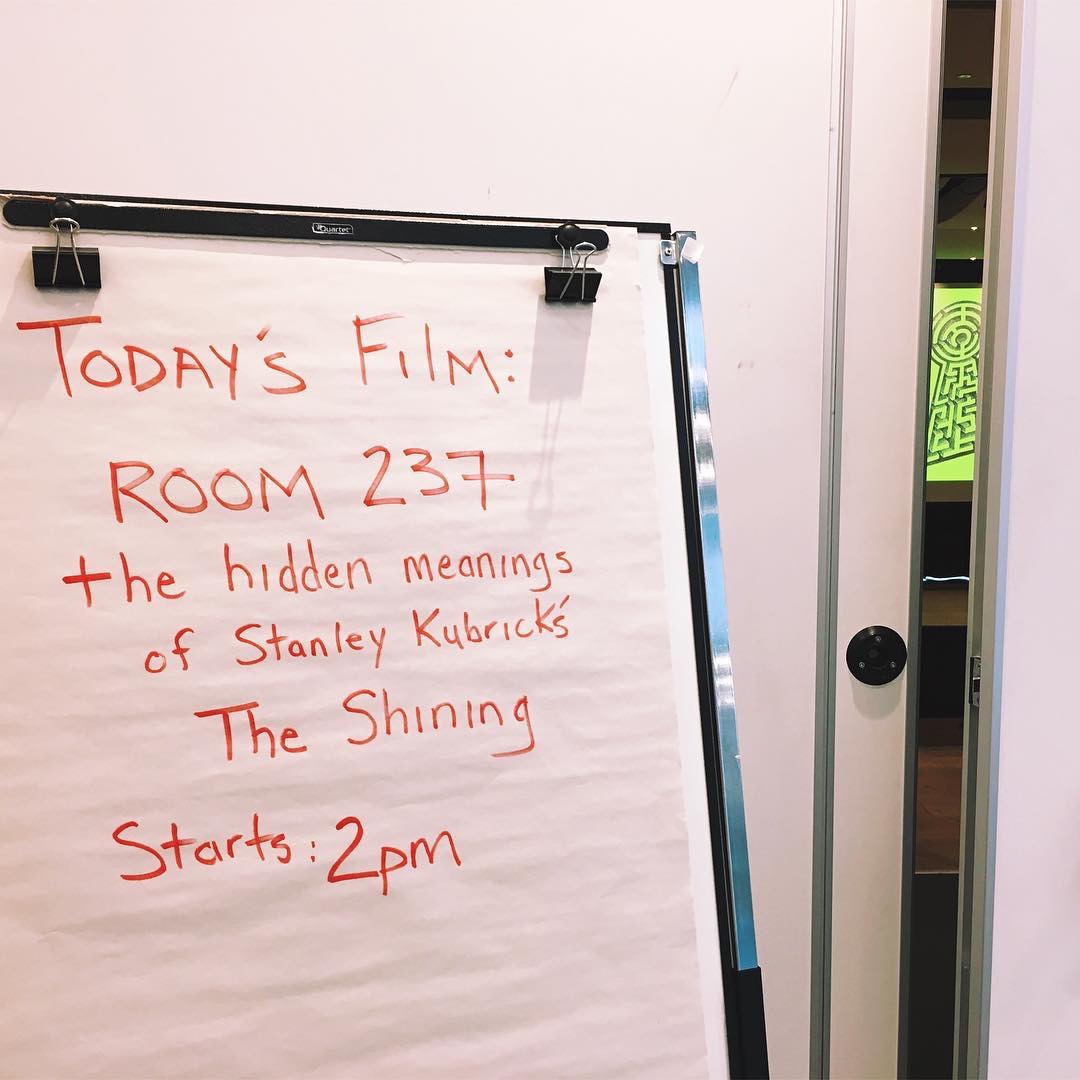 Quartet
TODAY'S FILM:
ROOM 237
the hidden meanings
of Stanley Kubrick's
The Shining
Starts: 2pm